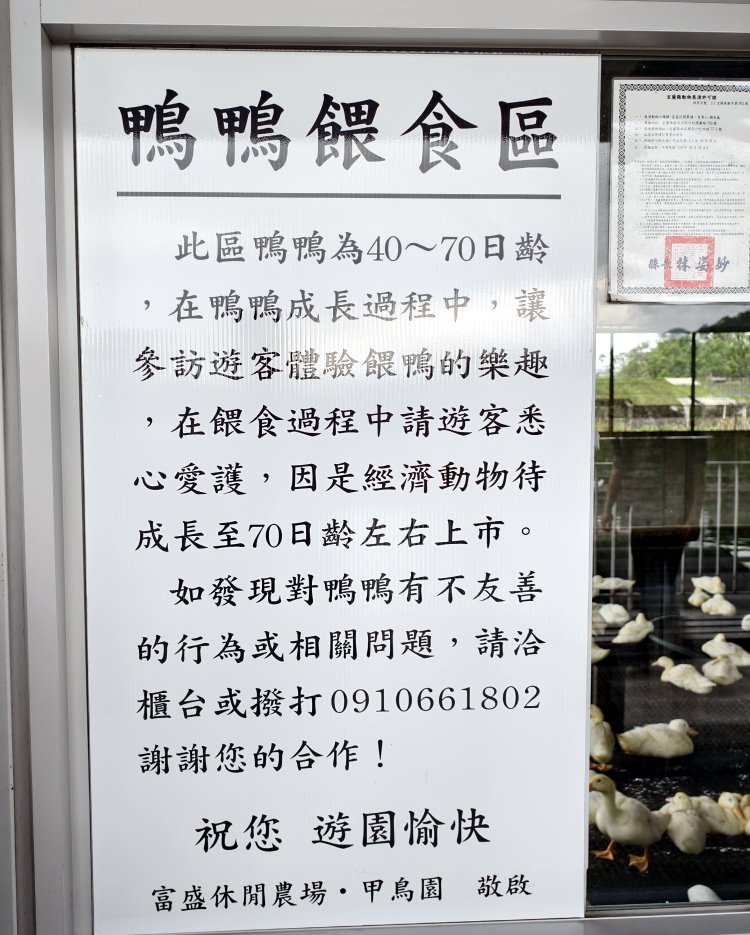 鴨鴨餵食區
此區鴨鴨為40～70日齡
，在鴨鴨成長過程中，讓
參訪遊客體驗餵鴨的樂趣
，在餵食過程中請遊客悉
心愛護，因是經濟動物待
成長至70日齡左右上市。
如發現對鴨鴨有不友善
的行為或相關問題，請洽
櫃台或撥打0910661802
謝謝您的合作！
祝您 遊園愉快
富盛休閒農場・甲鳥園 敬啟
縣長 林姿妙